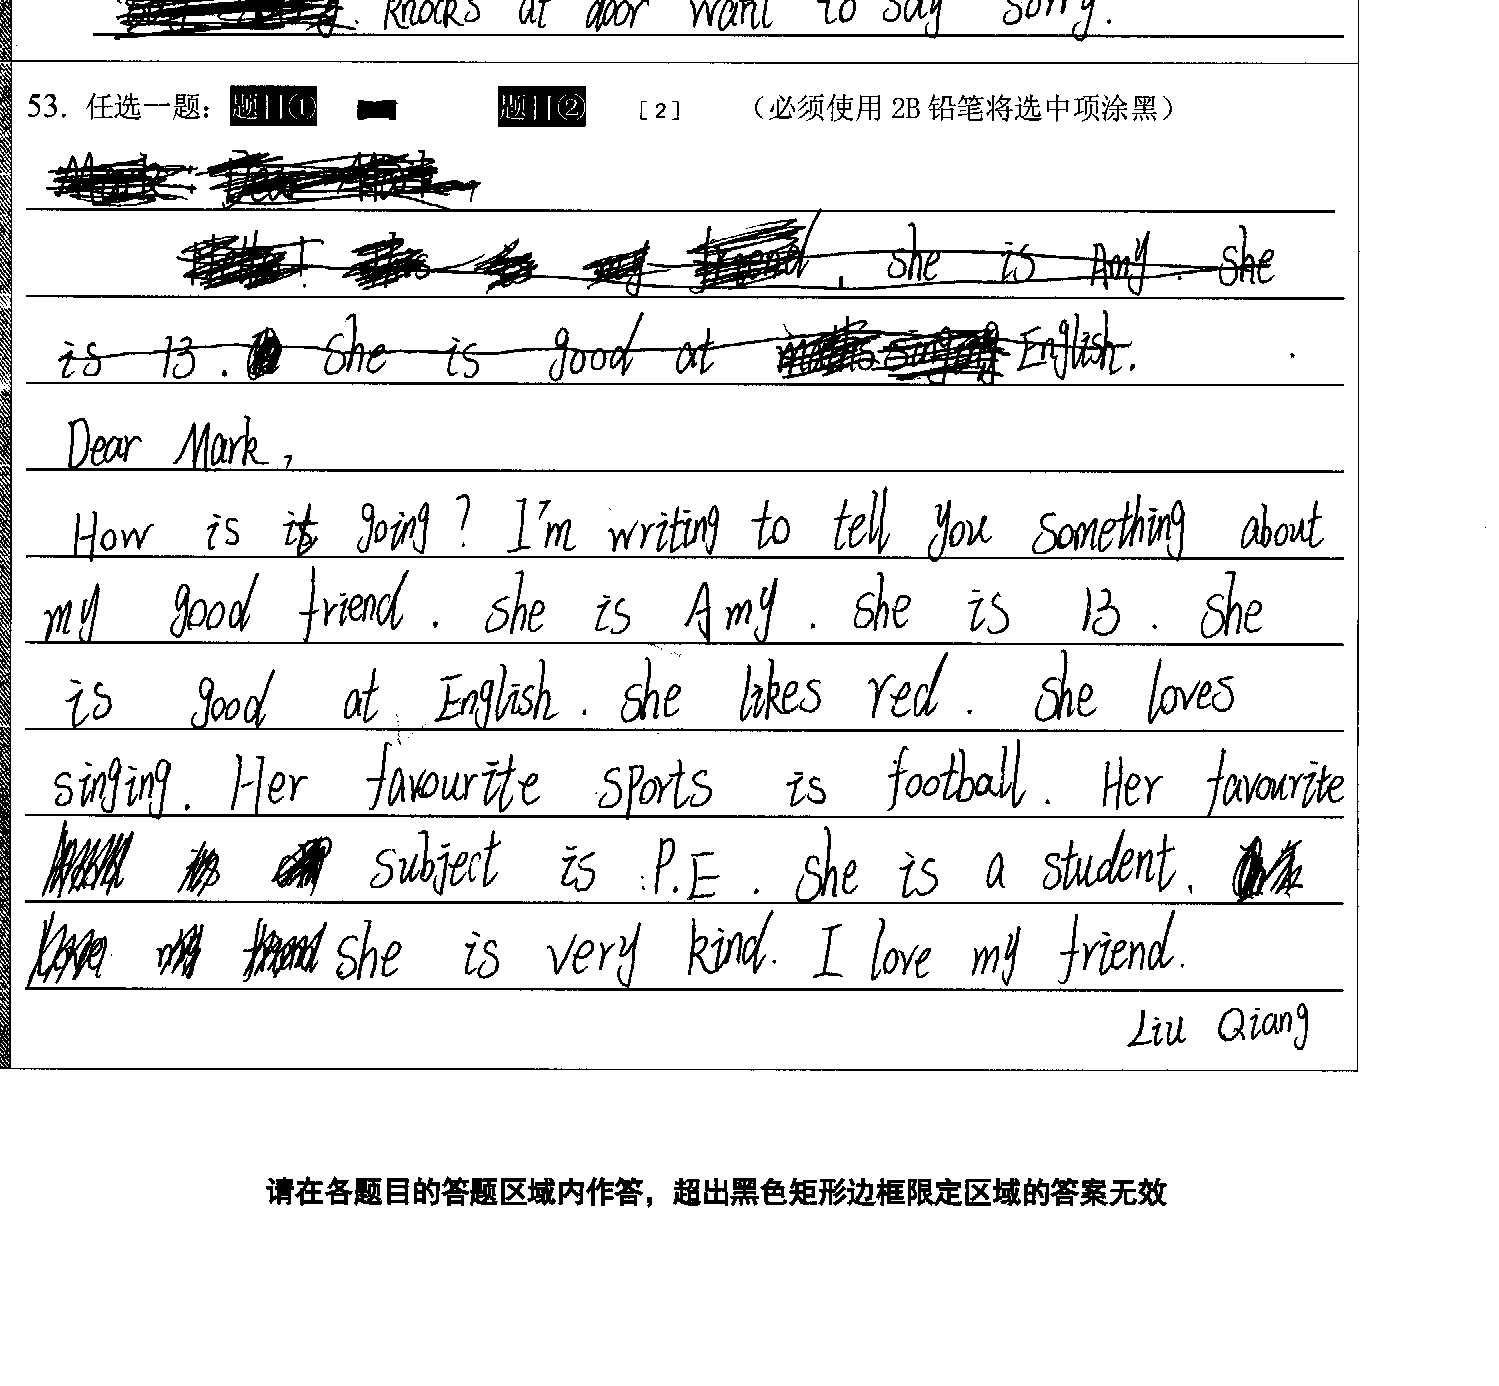 knocks at door want to say sorry.
53. 任选一题： 题目① 题目② [2] （必须使用 2B 铅笔将选中项涂黑）
Dear Mark,
she is Amy. she
is 13. she is good at English.
Dear Mark,
How is it going? I'm writing to tell you something about
my good friend. she is Amy. she is 13. she
is good at English. she likes red. she loves
singing. Her favourite sports is football. Her favourite
subject is P.E. she is a student.
she is very kind. I love my friend.
Liu Qiang
请在各题目的答题区域内作答，超出黑色矩形边框限定区域的答案无效